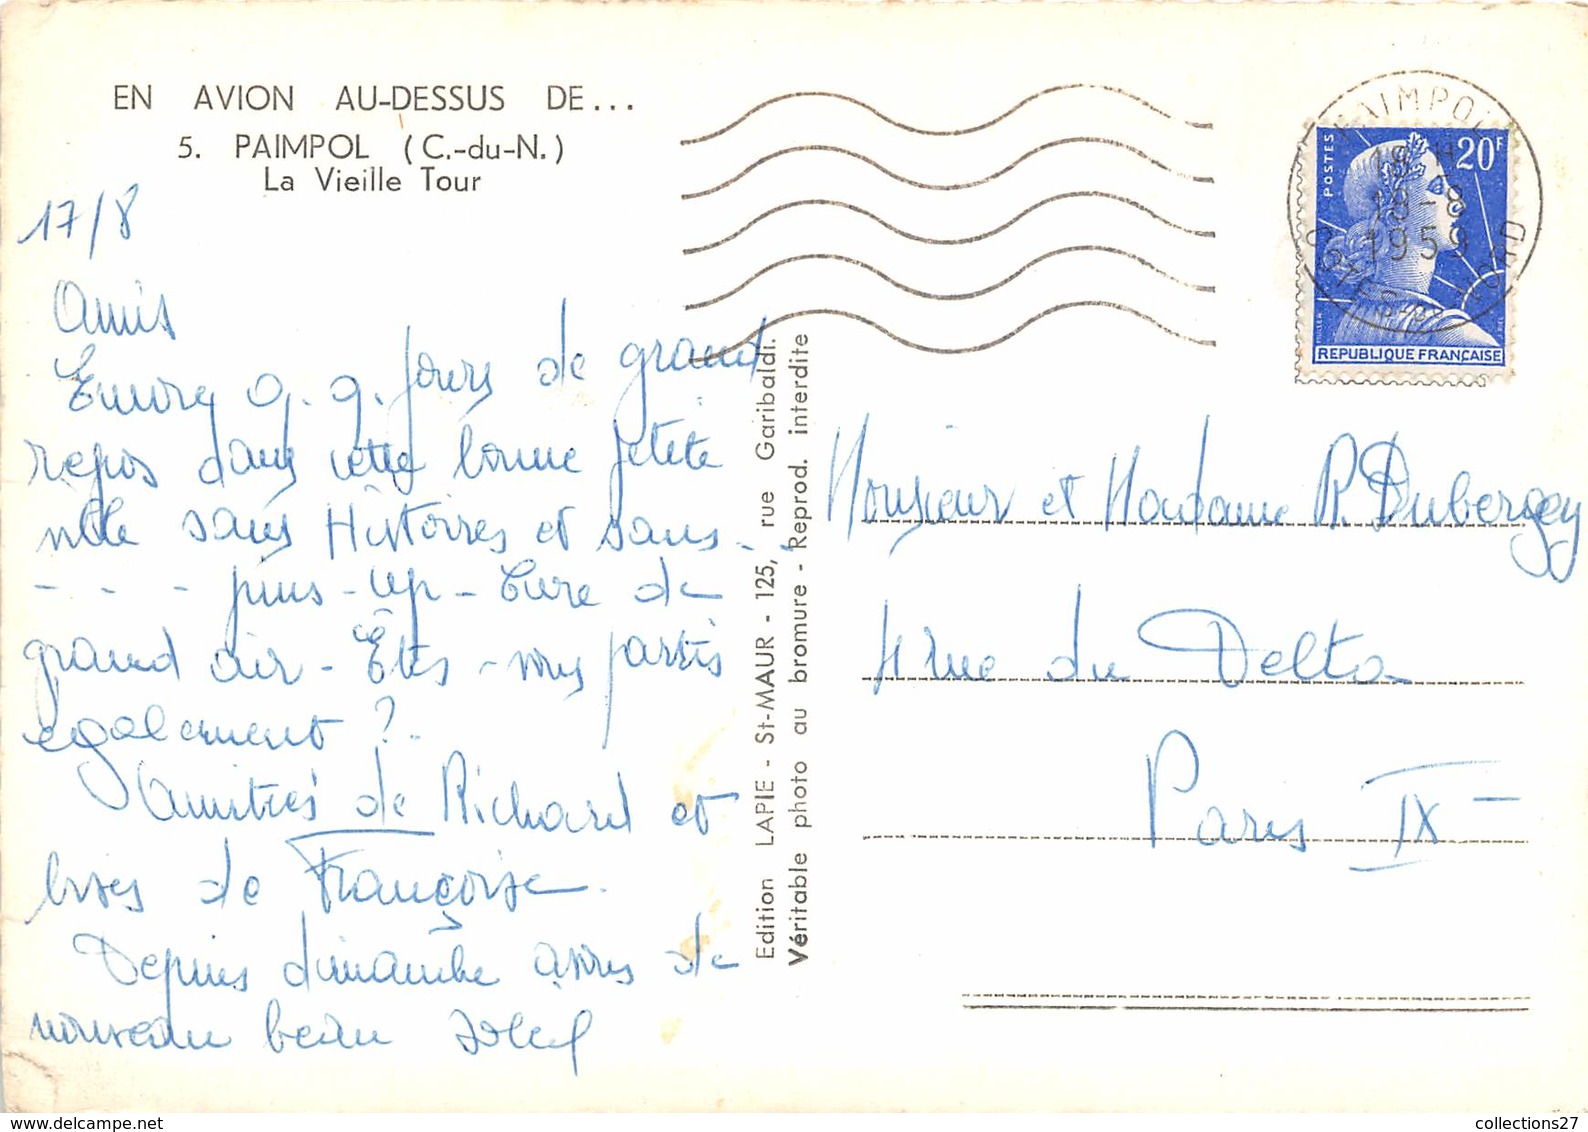 EN AVION AU-DESSUS DE...
5. PAIMPOL (C.-du-N.)
La Vieille Tour
17/8
Amis
Encore q. q. jours de grand
repos dans cette bonne petite
ville sans Histoires et sans - -
- - - pins-up - Cure de
grand air - Êtes-vous partis
egalement ?.
Amitiés de Richard et
bises de Françoise.
Depuis dimanche avons de
nouveau beau soleil
Edition LAPIE - St-MAUR - 125, rue Garibaldi.
Véritable photo au bromure - Reprod. interdite
PAIMPOL
19 H
18-8
1959
COTES-DU-NORD
POSTES
20F
MULLER
REPUBLIQUE FRANÇAISE
Monsieur et Madame R. Dubergey
4 rue du Delta
Paris IX
collections27